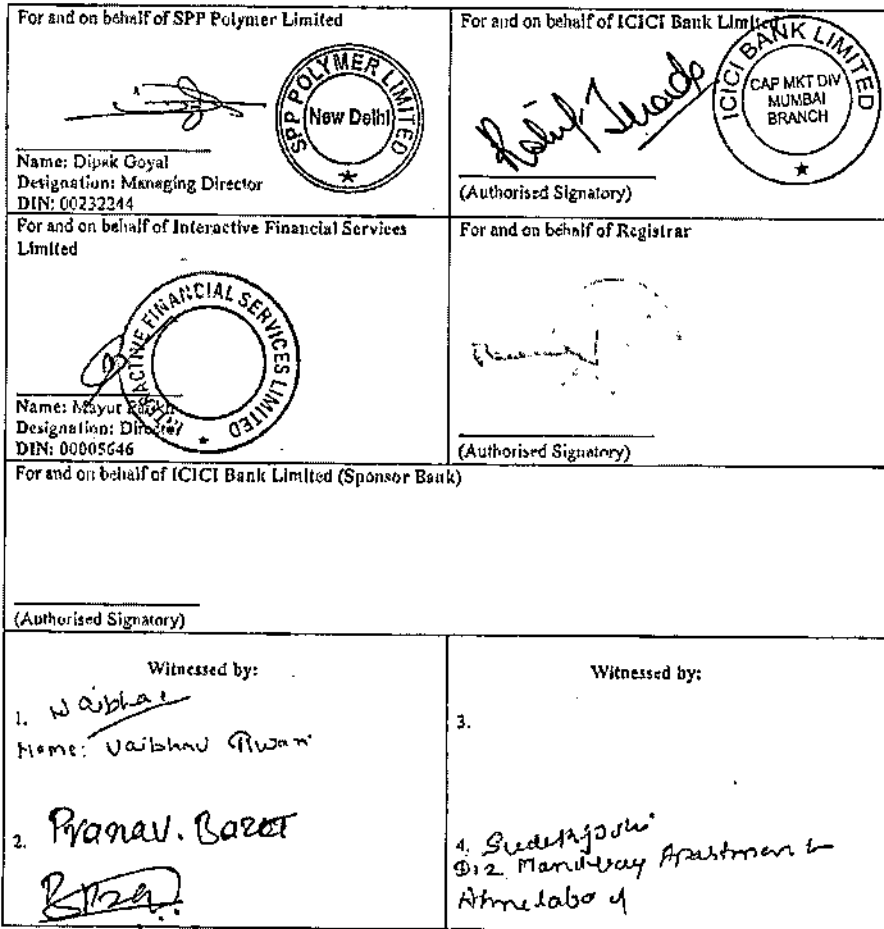 For and on behalf of SPP Polymer Limited
SPP POLYMER LIMITED
New Delhi
Name: Dipak Goyal
Designation: Managing Director
DIN: 00232244
For and on behalf of ICICI Bank Limited
ICICI BANK LIMITED
CAP MKT DIV
MUMBAI
BRANCH
(Authorised Signatory)
For and on behalf of Interactive Financial Services
Limited
INTERACTIVE FINANCIAL SERVICES LIMITED
Name: Mayur Parikh
Designation: Director
DIN: 00005646
For and on behalf of Registrar
(Authorised Signatory)
For and on behalf of ICICI Bank Limited (Sponsor Bank)
(Authorised Signatory)
Witnessed by:
1. Vaibhav
Name: Vaibhav
2. Pranav. Barot
Witnessed by:
3.
4.
Ahmedabad